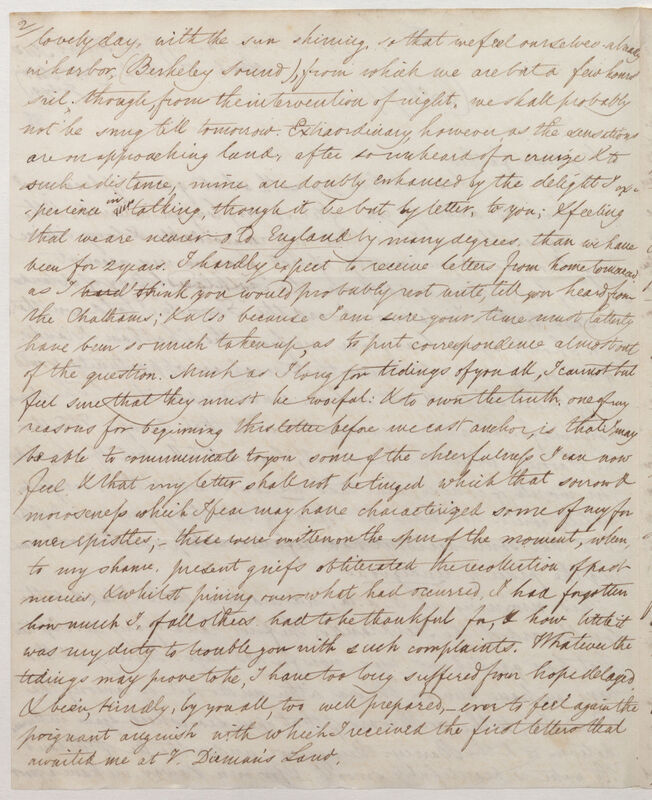 2/
lovely day, with the sun shining, so that we feel ourselves already
in harbor, (Berkeley Sound), from which we are but a few hours
sail. though from the intervention of night, we shall probably
not be snug till tomorrow. Extraordinary, however as the sensations
are on approaching land, after so unheard of a cruize & to
such a distance; mine are doubly enhanced by the delight I ex-
-perience in talking, though it be but by letter, to you; & feeling
that we are nearer Old England by many degrees, than we have
been for 2 years. I hardly expect to receive letters from home
as I think you would probably not write, till you heard from
the Chathams; & also because I am sure your time must latterly
have been so much taken up, as to put correspondence almost out
of the question. Much as I long for tidings of you all, I cannot but
feel sure that they must be woeful: & to own the truth, one of my
reasons for beginning this letter before we cast anchor, is that I may
be able to communicate to you some of the cheerfulness I can now
feel & that my letter shall not be tinged which that sorrow &
moroseness which I fear may have characterized some of my for
-mer epistles; - these were written on the spur of the moment, when,
to my shame, present griefs obliterated the recollection of past
mercies, & whilst pining over what had occurred, I had forgotten
how much I, of all others, had to be thankful for, & how little it
was my duty to trouble you with such complaints. Whatever the
tidings may prove to be, I have too long suffered from hope delayed
& been, kindly, by you all, too well prepared, - ever to feel again the
poignant anguish with which I received the first letters that
awaited me at V. Dieman's Land.